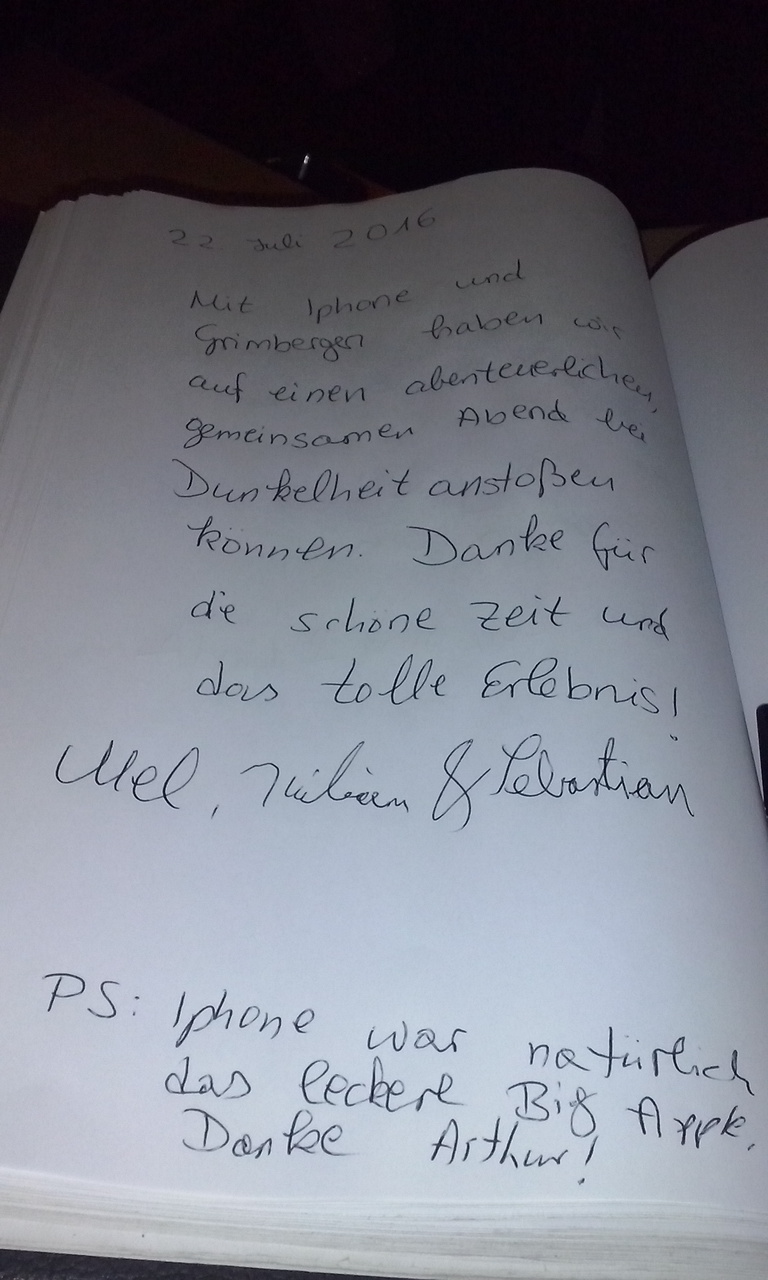 22 Juli 2016
Mit Iphone und
Grimbergen haben wir
auf einen abenteuerlichen,
gemeinsamen Abend bei
Dunkelheit anstoßen
können. Danke für
die schöne Zeit und
das tolle Erlebnis!
Mel, & Sebastian
PS: Iphone war natürlich
das leckere Big Apple.
Danke Arthur!